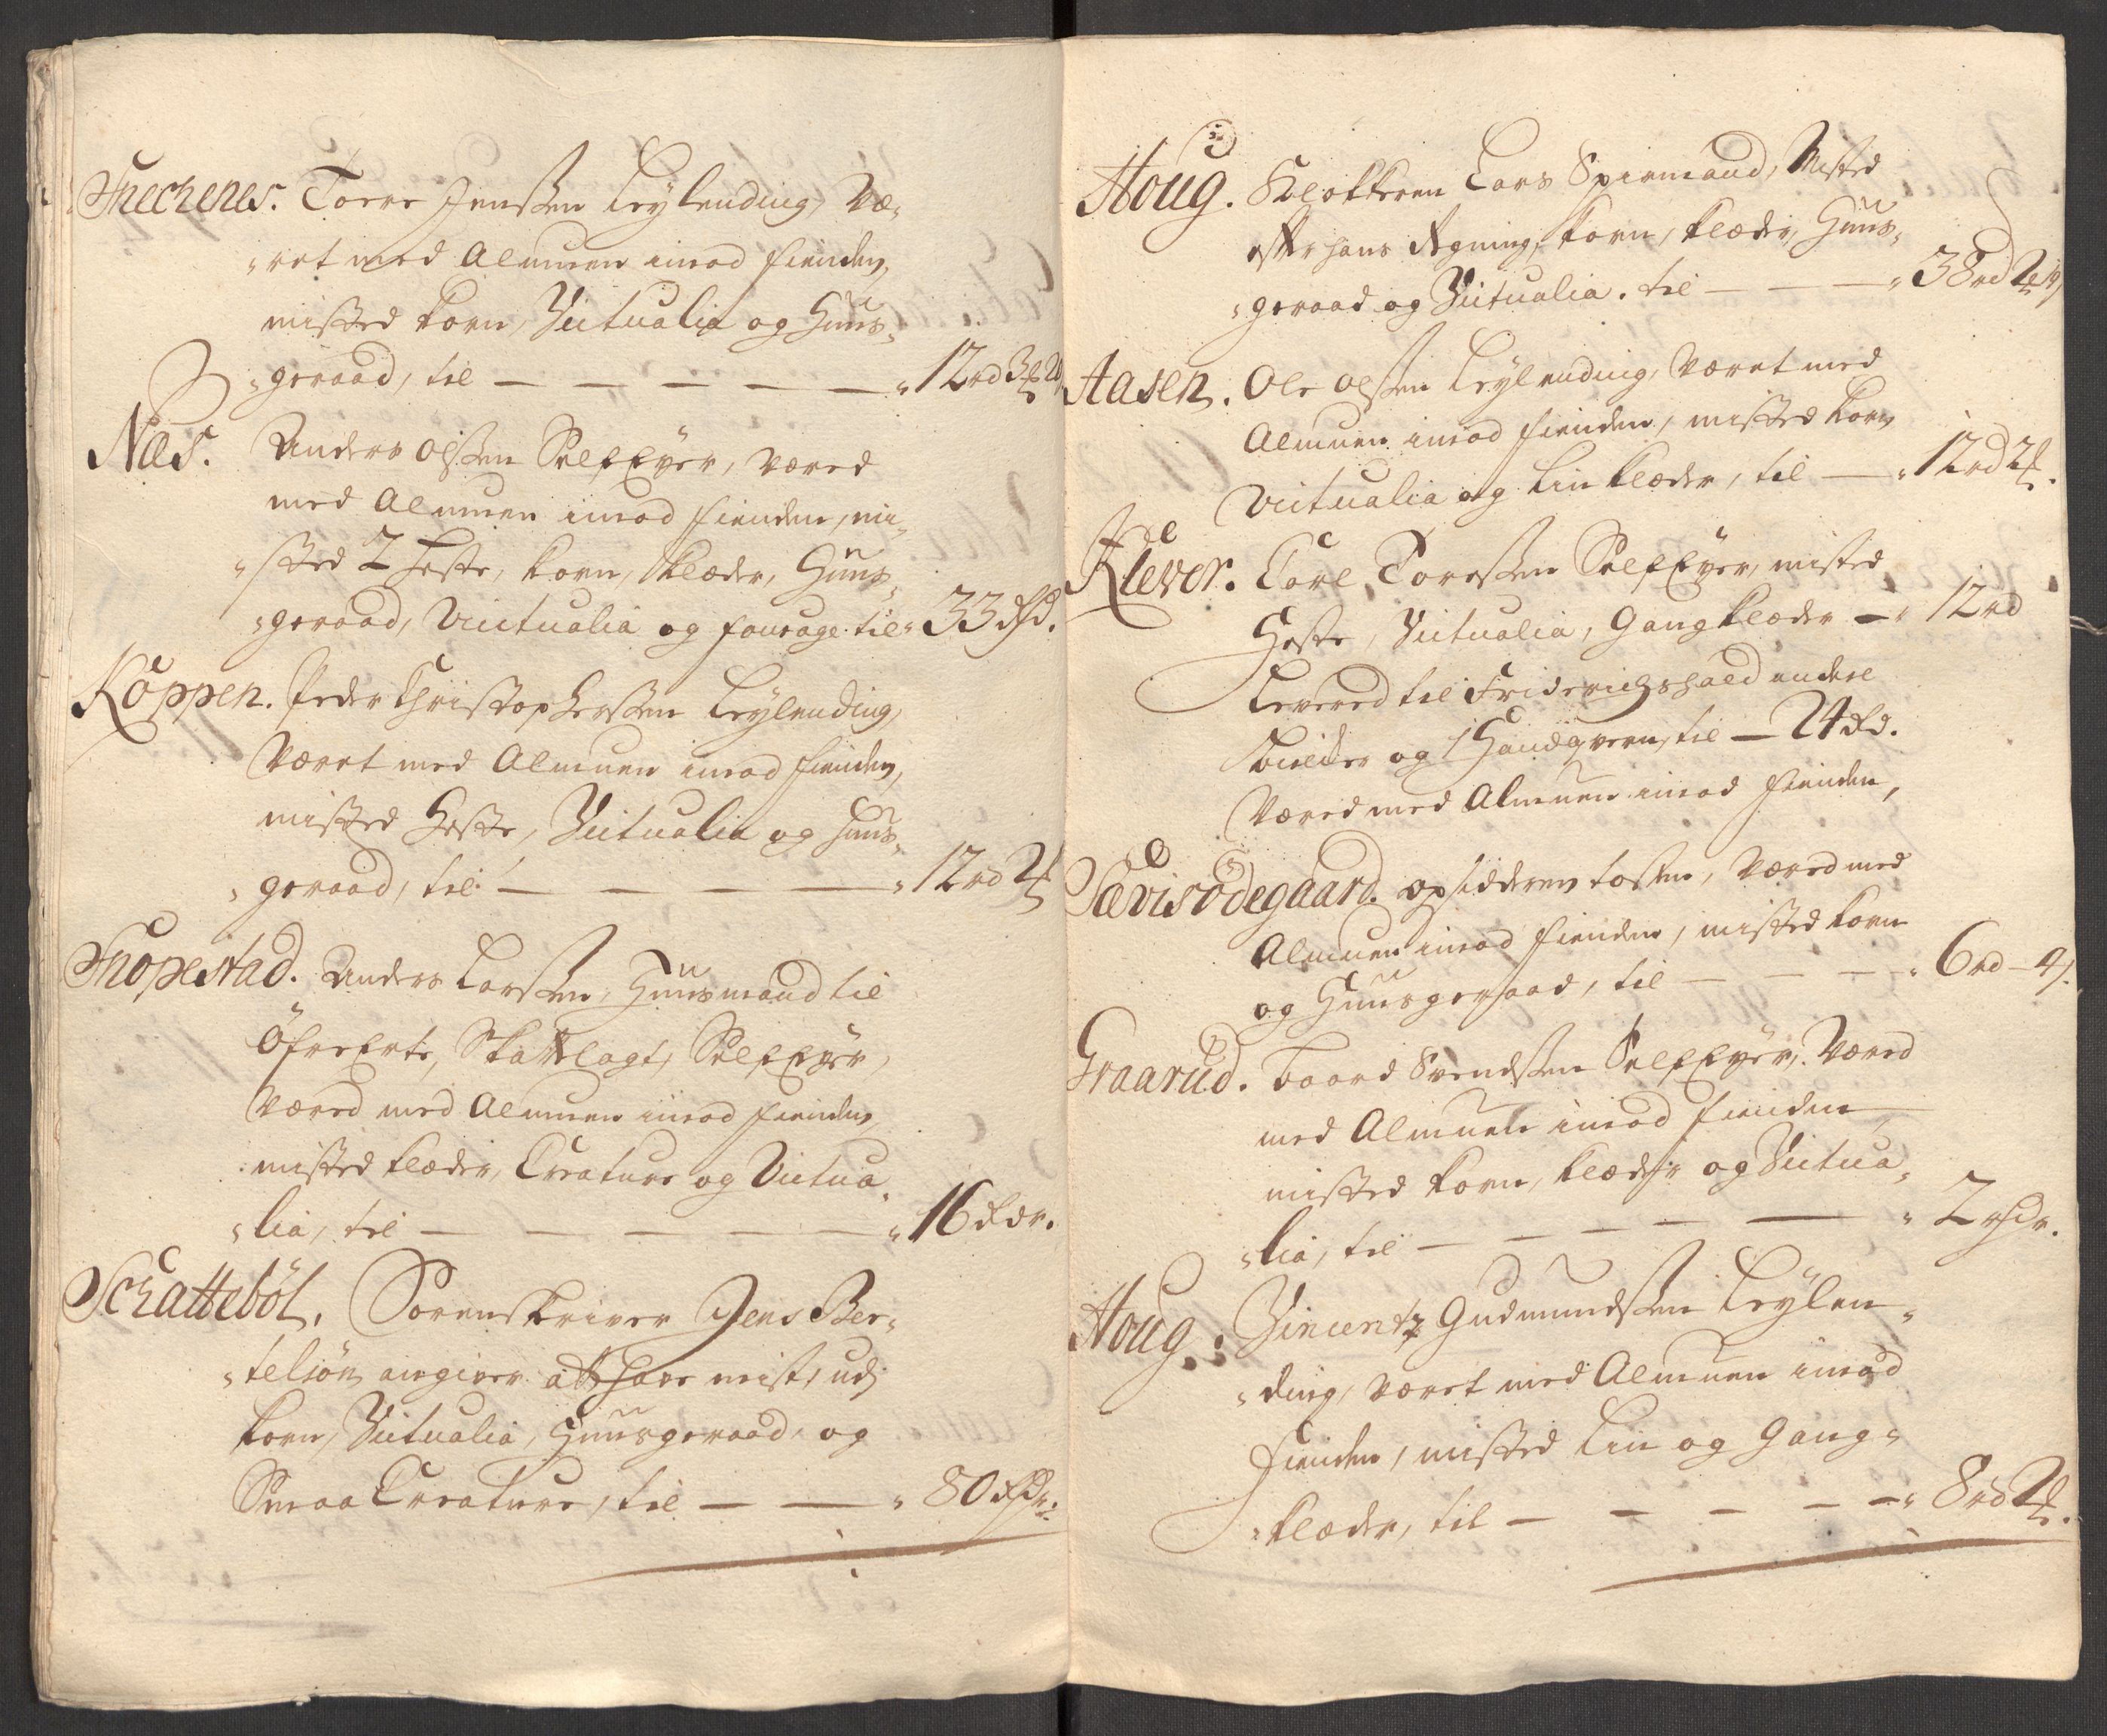 Tnechenes. Torre Jenssen Leylending, Væ-
"ret med Almuen imod fienden,
misted korn, Victualia og Huus-
"geraad, til — — — — — " 12 rd 3 
Næs. Anders Olssen Selfeyer, væred
med Almuen imod fienden, mi-
"sted 2 heste, korn, klæder, Huus-
"geraad, Victualia og fourage til " 33 rd.
Köppen. Peder Christophersen Leylending,
Været med Almuen imod fienden,
misted Heste, Victualia og huus-
"geraad, til — — — — " 12 rd 2
Knopestad. Anders Larssen, Huusmand til
Öfre Erte, Skattlagt, Selfeyer,
Væred med Almuen imod fienden,
misted klæder, Creature og Victua-
"lia, til — — — — — " 16 rdr.
Schatteböl. Sorenskriver Jens Ber-
"telsön angiver att have mist, udj
korn, Victualia, Huusgeraad, og
Smaa Creature, til — — " 80 rdr.
Houg. Klokkeren Lars Spirmand, Misted
efter hans Regning, korn, klæder, Huus-
"geraad og Victualia. til — — — " 38 rd 2
Aasen. Ole Olssen Leylending, Været med
Almuen imod fienden, misted korn
Victualia og Linklæder, til — " 12 rd 2.
Klever. Carl Toressen Selfeyer, misted
Heste, Victualia, Gangklæder — " 12 rd
Levered til Friderichshald endeel
og 1 Handqvern, til — 24 rd.
Væred med Almuen imod fienden,
Sævisödegaard. opsidderen tosten, Væred med
Almuen imod fienden, misted korn
og Huusgeraad, til — — — " 6 rd —
Graarud. Baard Svendssen Selfeyer, Væred
med Almuen imod fienden
misted korn, klæder og Victua-
"lia, til — — — — — " 2 rdr.
Houg. Vincentz Gudmundssen Leylen-
"ding, været med Almuen imod
Fienden, misted Lin og Gang-
"klæder, til — — — — — " 8 rd 2.